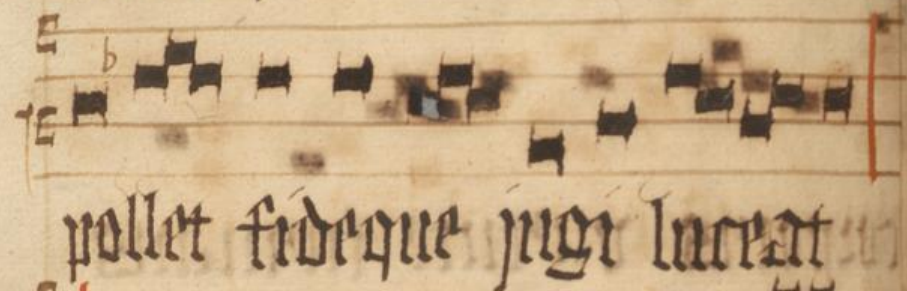 pollet fideque jugi luceat